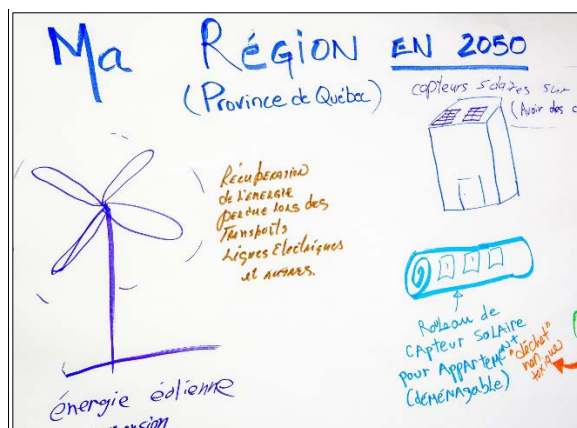 Ma RÉGION EN 2050
(Province de Québec)
capteurs solaires sur
(Avoir des
RÉCUPERATION
de l'énergie
perdue lors des
TRANSPORTS
Lignes Electriques
et autres.
Rouleau de
CAPTEUR SOLAIRE
pour APPARTEMENT
(déménageable)
"déchet"
non
toxique
énergie éolienne